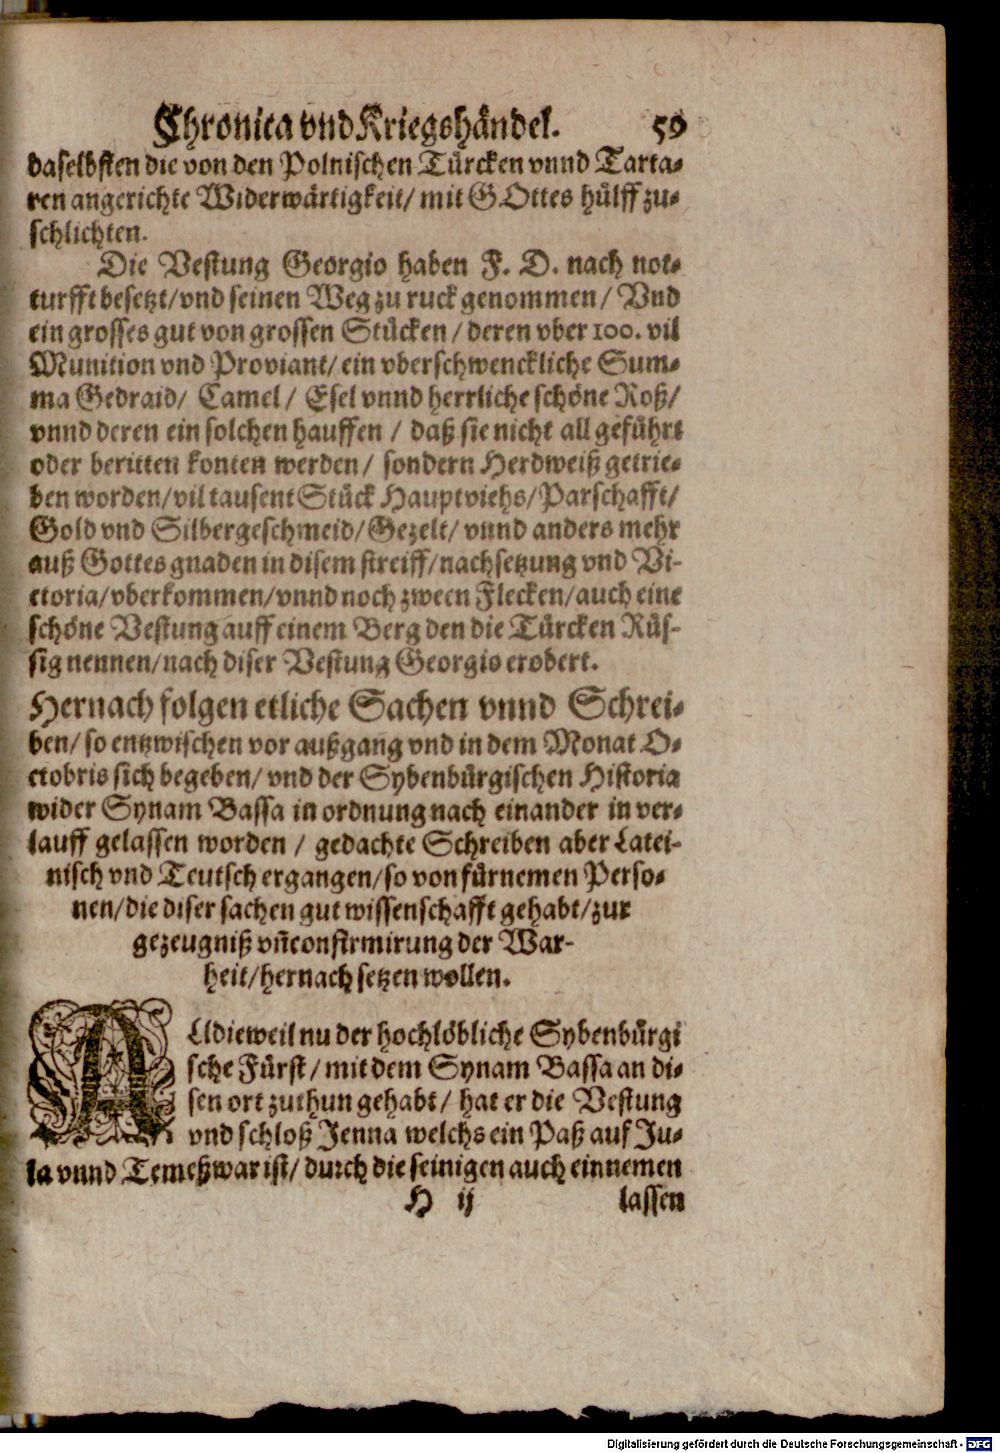 Chronica vnd Kriegshändel. 59
daselbsten die von den Polnischen Türcken vnnd Tarta-
ren angerichte Widerwärtigkeit/ mit GOttes hülff zu-
schlichten.
Die Vestung Georgio haben F. D. nach not-
turfft besetzt/ vnd seinen Weg zu ruck genommen/ Vnd
ein grosses gut von grossen Stücken/ deren vber 100. vil
Munition vnd Proviant/ ein vberschwenckliche Sum-
ma Gedraid/ Camel/ Esel vnnd herrliche schöne Roß/
vnnd deren ein solchen hauffen/ daß sie nicht all geführt
oder beritten konten werden/ sondern Herdweiß getrie-
ben worden/ vil tausent Stück Hauptviehs/ Parschafft/
Gold vnd Silbergeschmeid/ Gezelt/ vnnd anders mehr
auß Gottes gnaden in disem streiff/ nachsetzung vnd Vi-
ctoria/ vberkommen/ vnnd noch zween Flecken/ auch eine
schöne Vestung auff einem Berg den die Türcken Rüs-
sig nennen/ nach diser Vestung Georgio erobert.
Hernach folgen etliche Sachen vnnd Schrei-
ben/ so entzwischen vor außgang vnd in dem Monat O-
ctobris sich begeben/ vnd der Sybenbürgischen Historia
wider Synam Bassa in ordnung nach einander in ver-
lauff gelassen worden/ gedachte Schreiben aber Latei-
nisch vnd Teutsch ergangen/ so von fürnemen Perso-
nen/ die diser sachen gut wissenschafft gehabt/ zur
gezeugniß vñ confirmirung der War-
heit/ hernach setzen wollen.
ALldieweil nu der hochlöbliche Sybenbürgi
sche Fürst/ mit dem Synam Bassa an di-
sen ort zuthun gehabt/ hat er die Vestung
vnd schloß Jenna welchs ein Paß auf Ju-
la vnnd Temeßwar ist/ durch die seinigen auch einnemen
H ij lassen
Digitalisierung gefördert durch die Deutsche Forschungsgemeinschaft - DFG